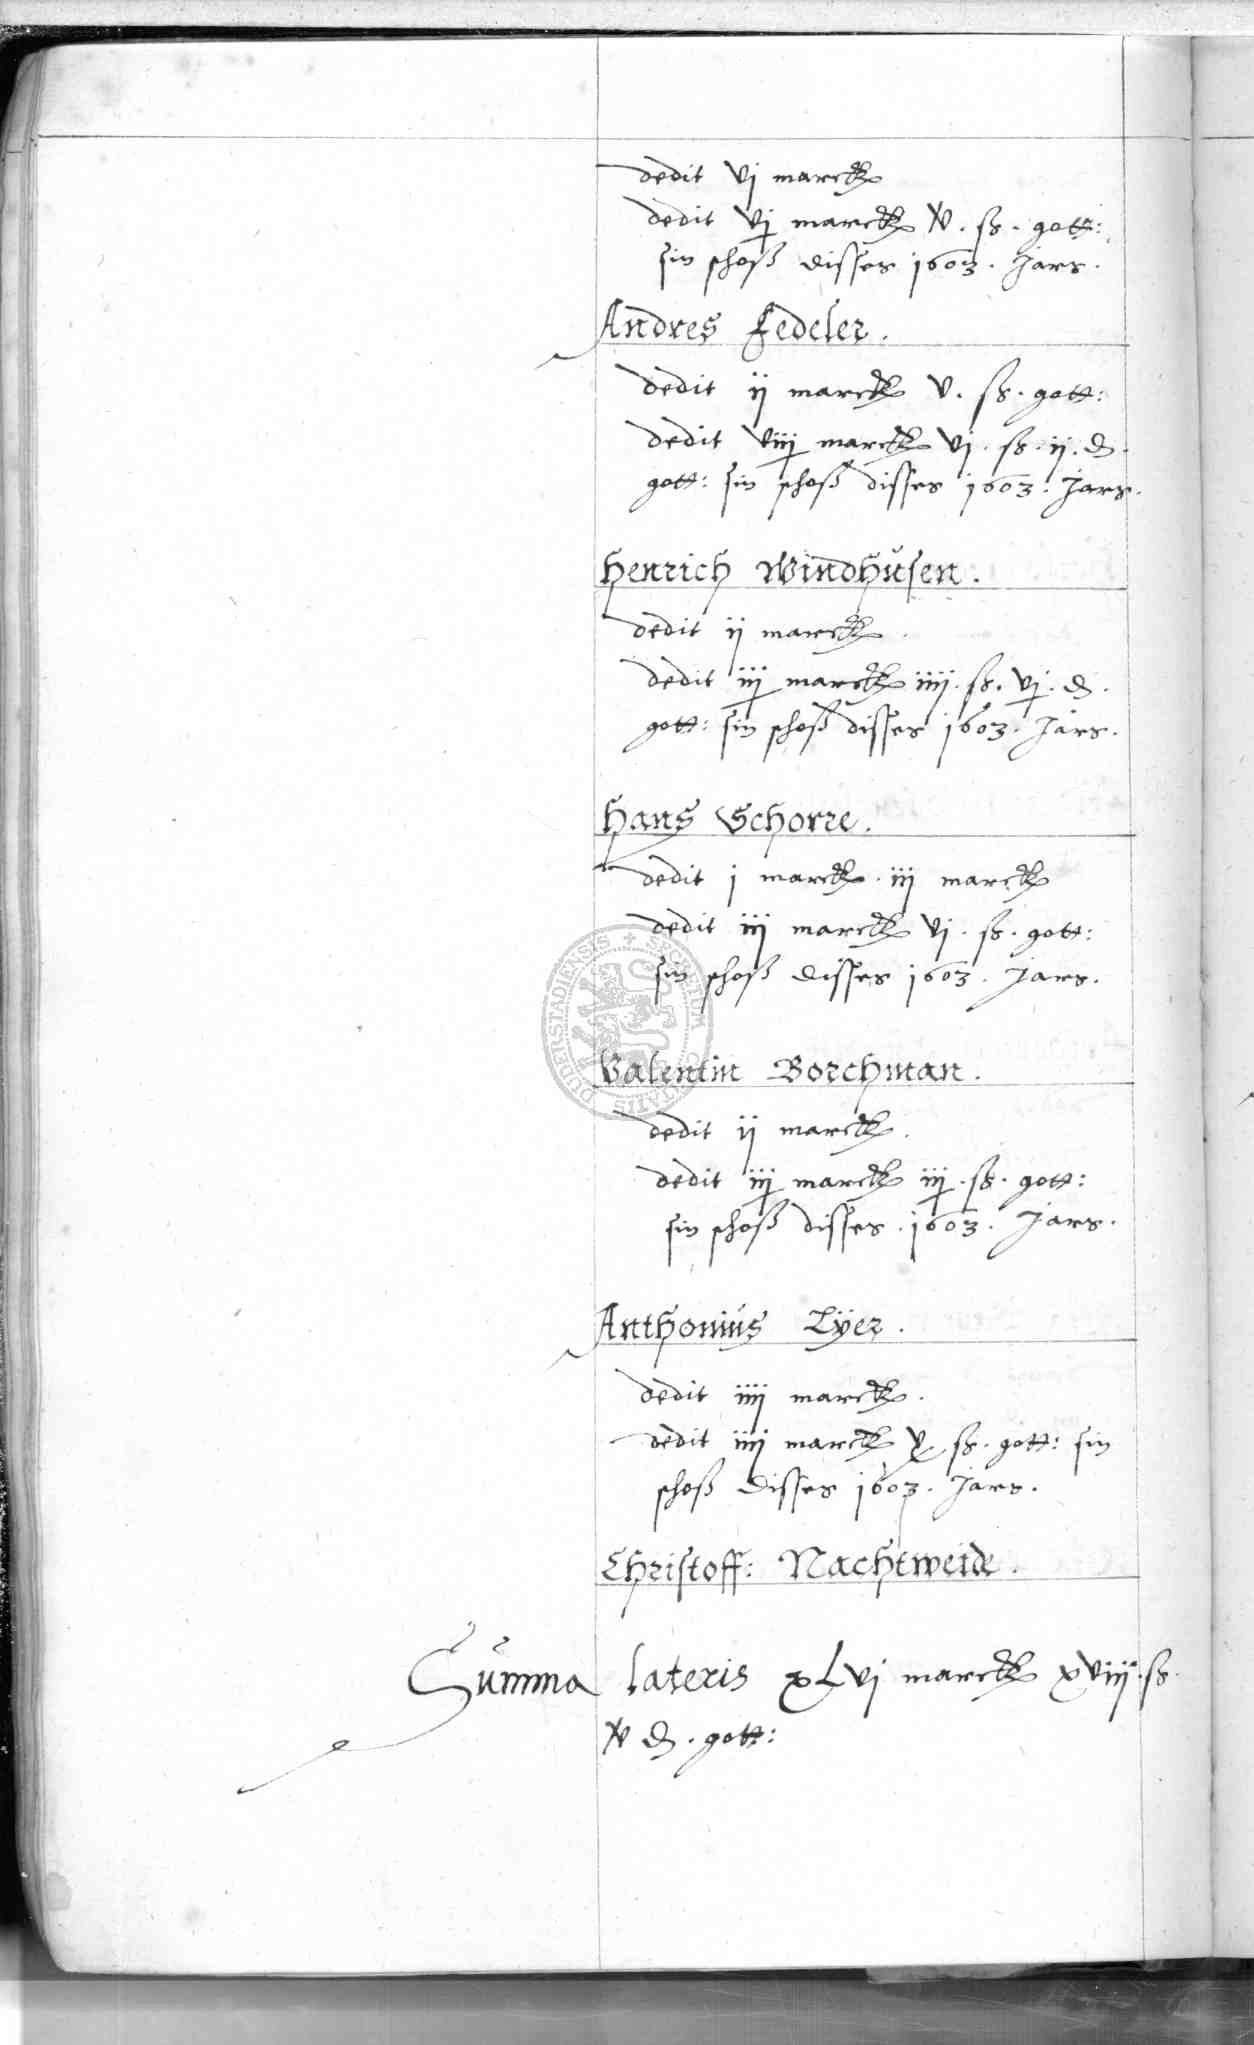 dedit vj marck
dedit vj marck v. ß. gott:
sin schoß disses 1603. Jars.
Andres Fedeler.
dedit ij marck v. ß. gott:
dedit viij marck vj. ß. ij. d.
gott: sin schoß disses 1603. Jars.
Henrich Windhusen.
dedit ij marck.
dedit iij marck iiij. ß. vj. d.
gott: sin schoß disses 1603. Jars.
Hans Schorre.
dedit j marck. iij marck
dedit iij marck vj. ß. gott:
sin schoß disses 1603. Jars.
Valentin Borchman.
dedit ij marck.
dedit iij marck iij. ß. gott:
sin schoß disses. 1603. Jars.
Anthonius Lÿer.
dedit iiij marck.
dedit iiij marck v ß. gott: sin
schoß disses 1603. Jars.
Christoff: Nachtweide.
Summa lateris xLvj marck xviij. ß.
v d. gott:
SECRETUM CIVITATIS DUDERSTADIENSIS